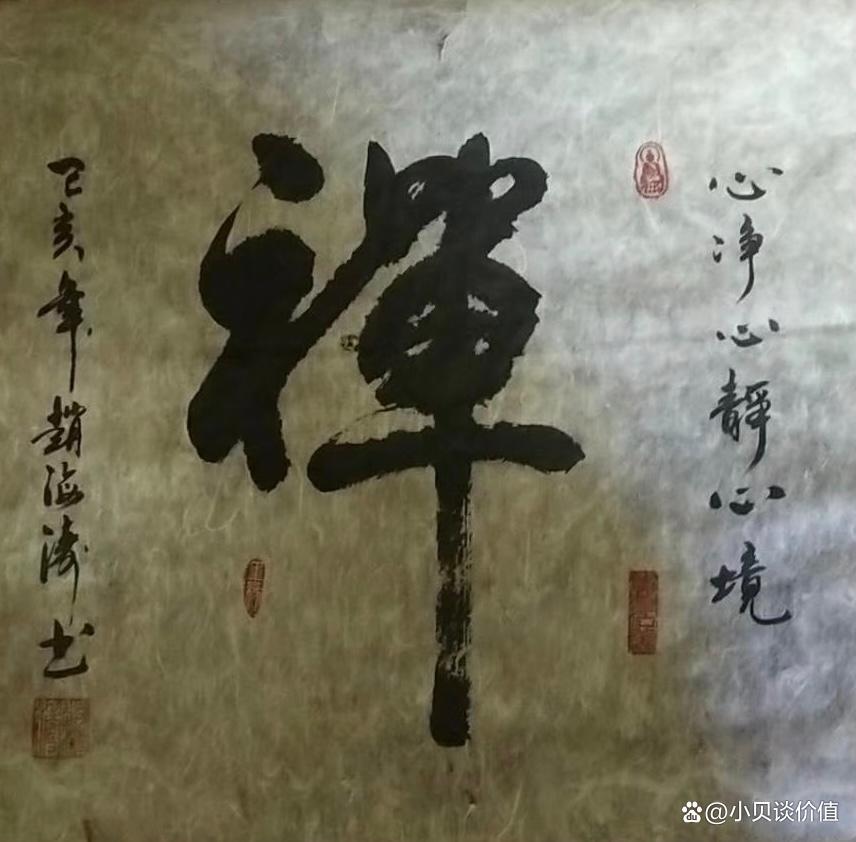 心净心靜心境
禪
己亥年趙海涛书
@小贝谈价值